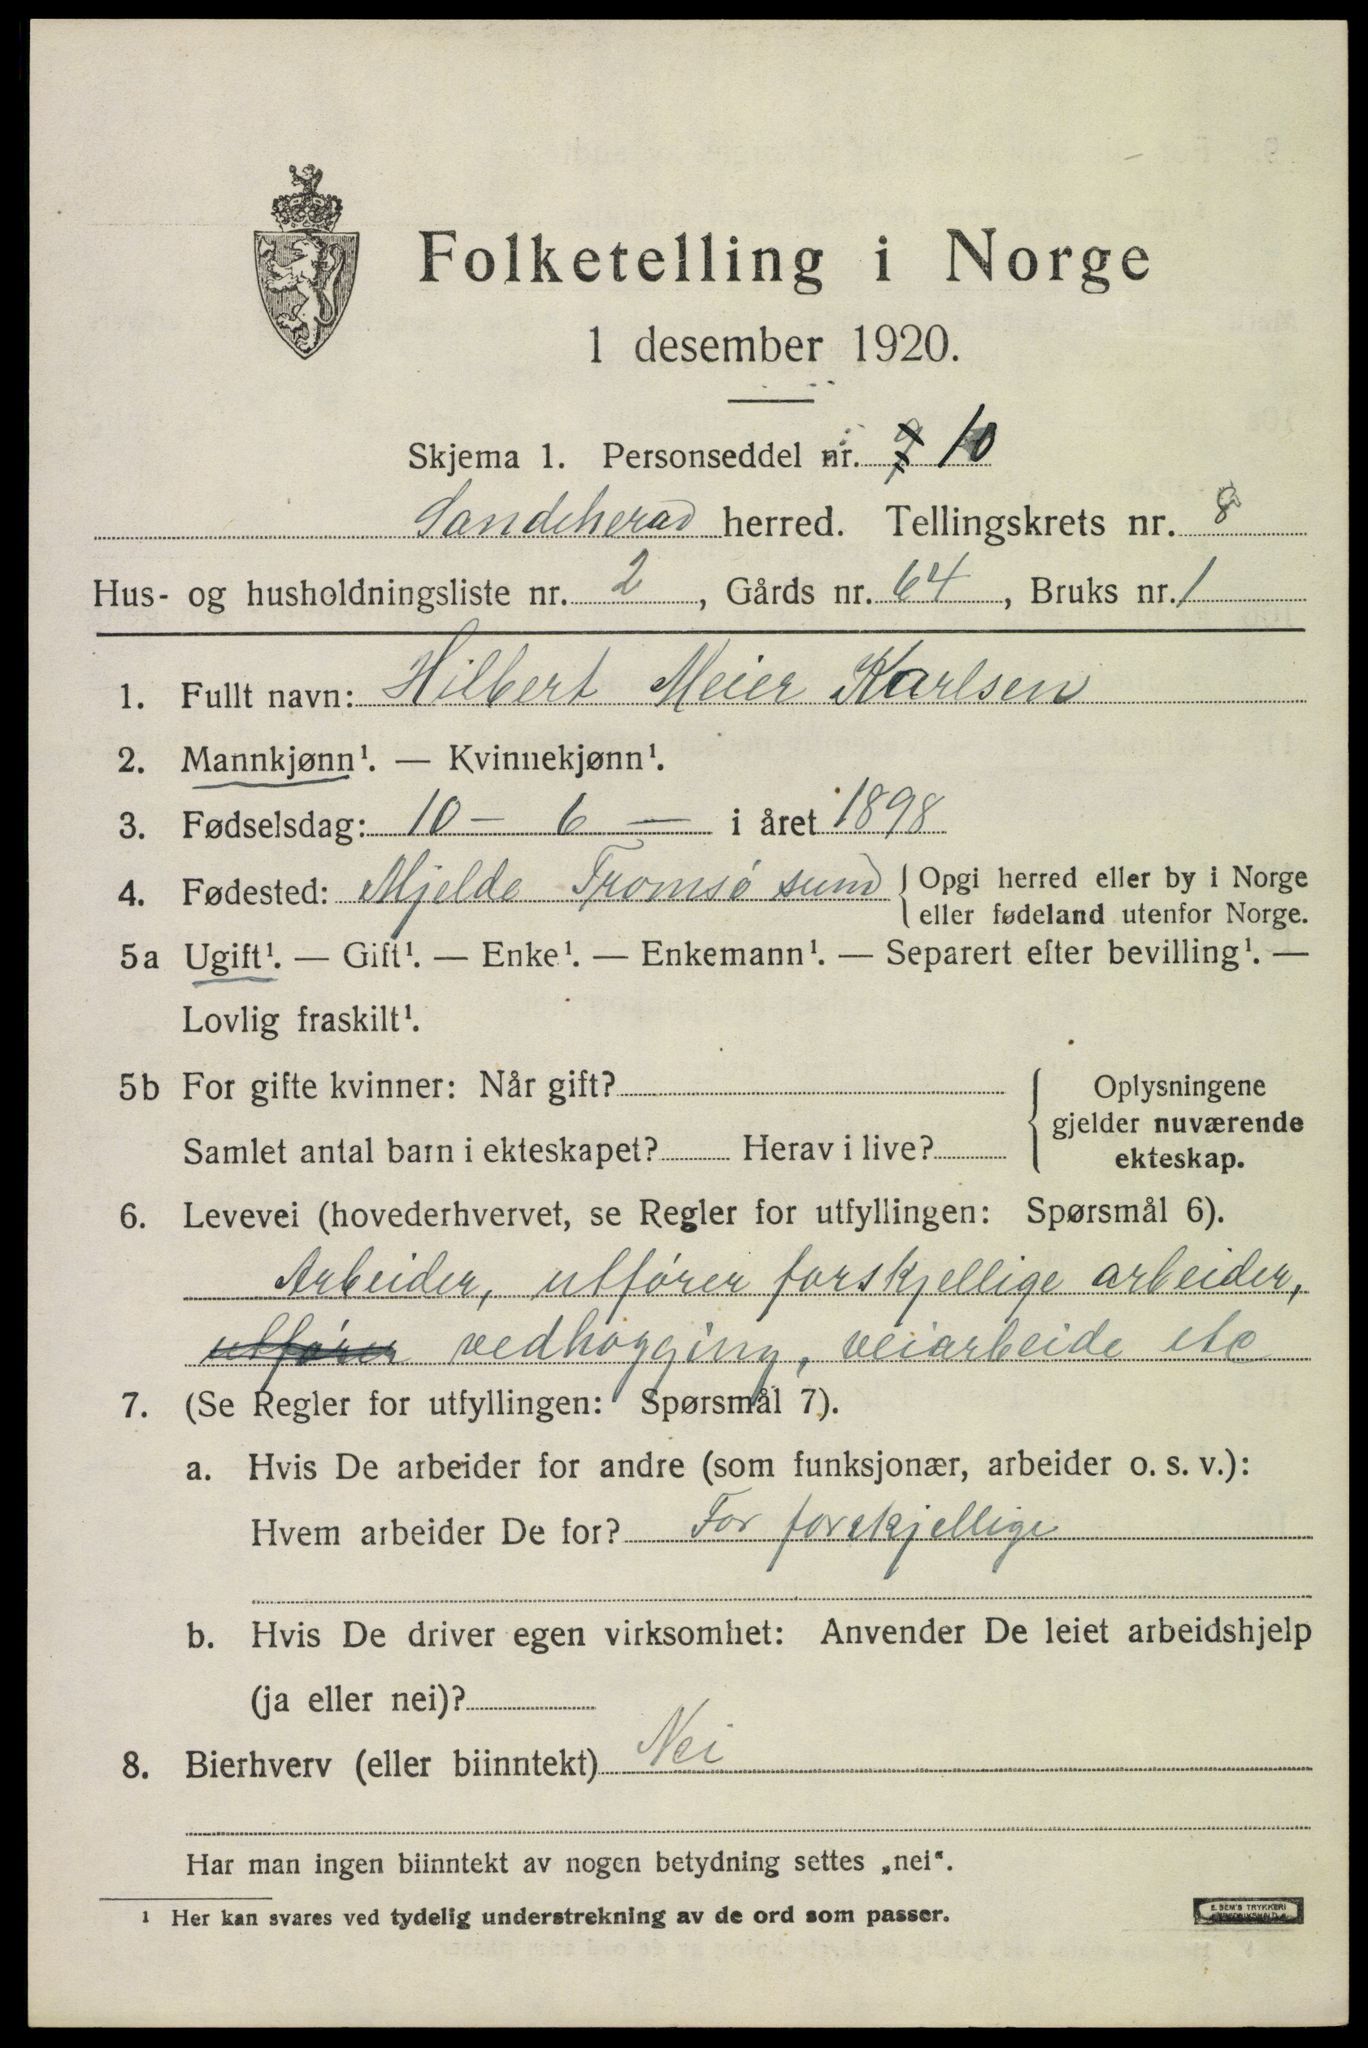 Folketelling i Norge
1 desember 1920.
Skjema 1. Personseddel nr. 10
Sandeherad herred. Tellingskrets nr. 8
Hus- og husholdningsliste nr. 2, Gårds nr. 64, Bruks nr. 1
1. Fullt navn: Hilbert Meier Karlsen
2. Mannkjønn¹. — Kvinnekjønn¹.
3. Fødselsdag: 10 — 6 — i året 1898
4. Fødested: Mjelde Tromsø sund { Opgi herred eller by i Norge
eller fødeland utenfor Norge.
5a Ugift¹. — Gift¹. — Enke¹. — Enkemann¹. — Separert efter bevilling¹. —
Lovlig fraskilt¹.
5b For gifte kvinner: Når gift?
Samlet antal barn i ekteskapet? Herav i live?
{ Oplysningene
gjelder nuværende
ekteskap.
6. Levevei (hovederhvervet, se Regler for utfyllingen: Spørsmål 6).
Arbeider, utfører forskjellige arbeider,
utfører vedhogging, veiarbeide etc
7. (Se Regler for utfyllingen: Spørsmål 7).
a. Hvis De arbeider for andre (som funksjonær, arbeider o. s. v.):
Hvem arbeider De for? For forskjellige
b. Hvis De driver egen virksomhet: Anvender De leiet arbeidshjelp
(ja eller nei)?
8. Bierhverv (eller biinntekt) Nei
Har man ingen biinntekt av nogen betydning settes „nei“.
¹ Her kan svares ved tydelig understrekning av de ord som passer.
E. SEM'S TRYKKERI